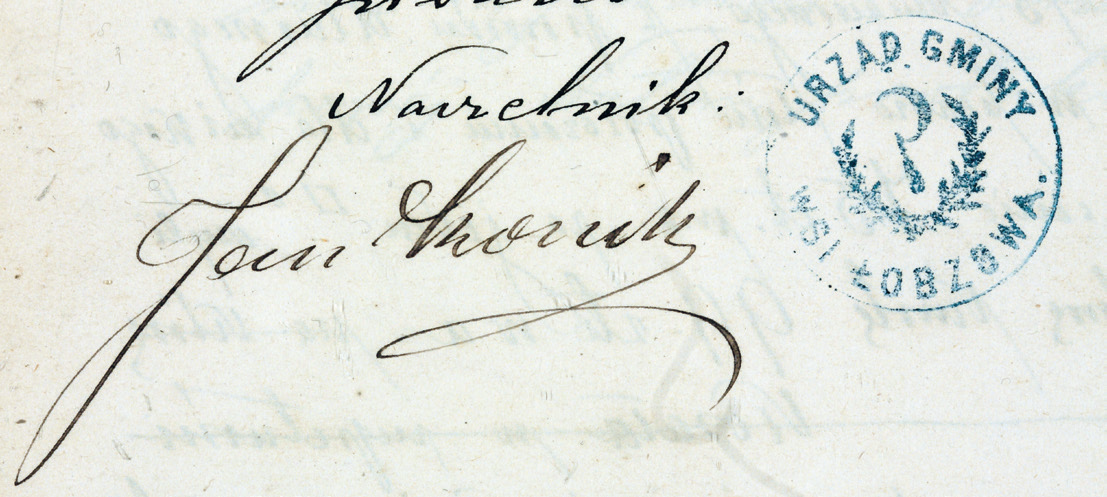 Naczelnik:
Jan Skonik
URZĄD GMINY
WSI ŁOBZOWA.